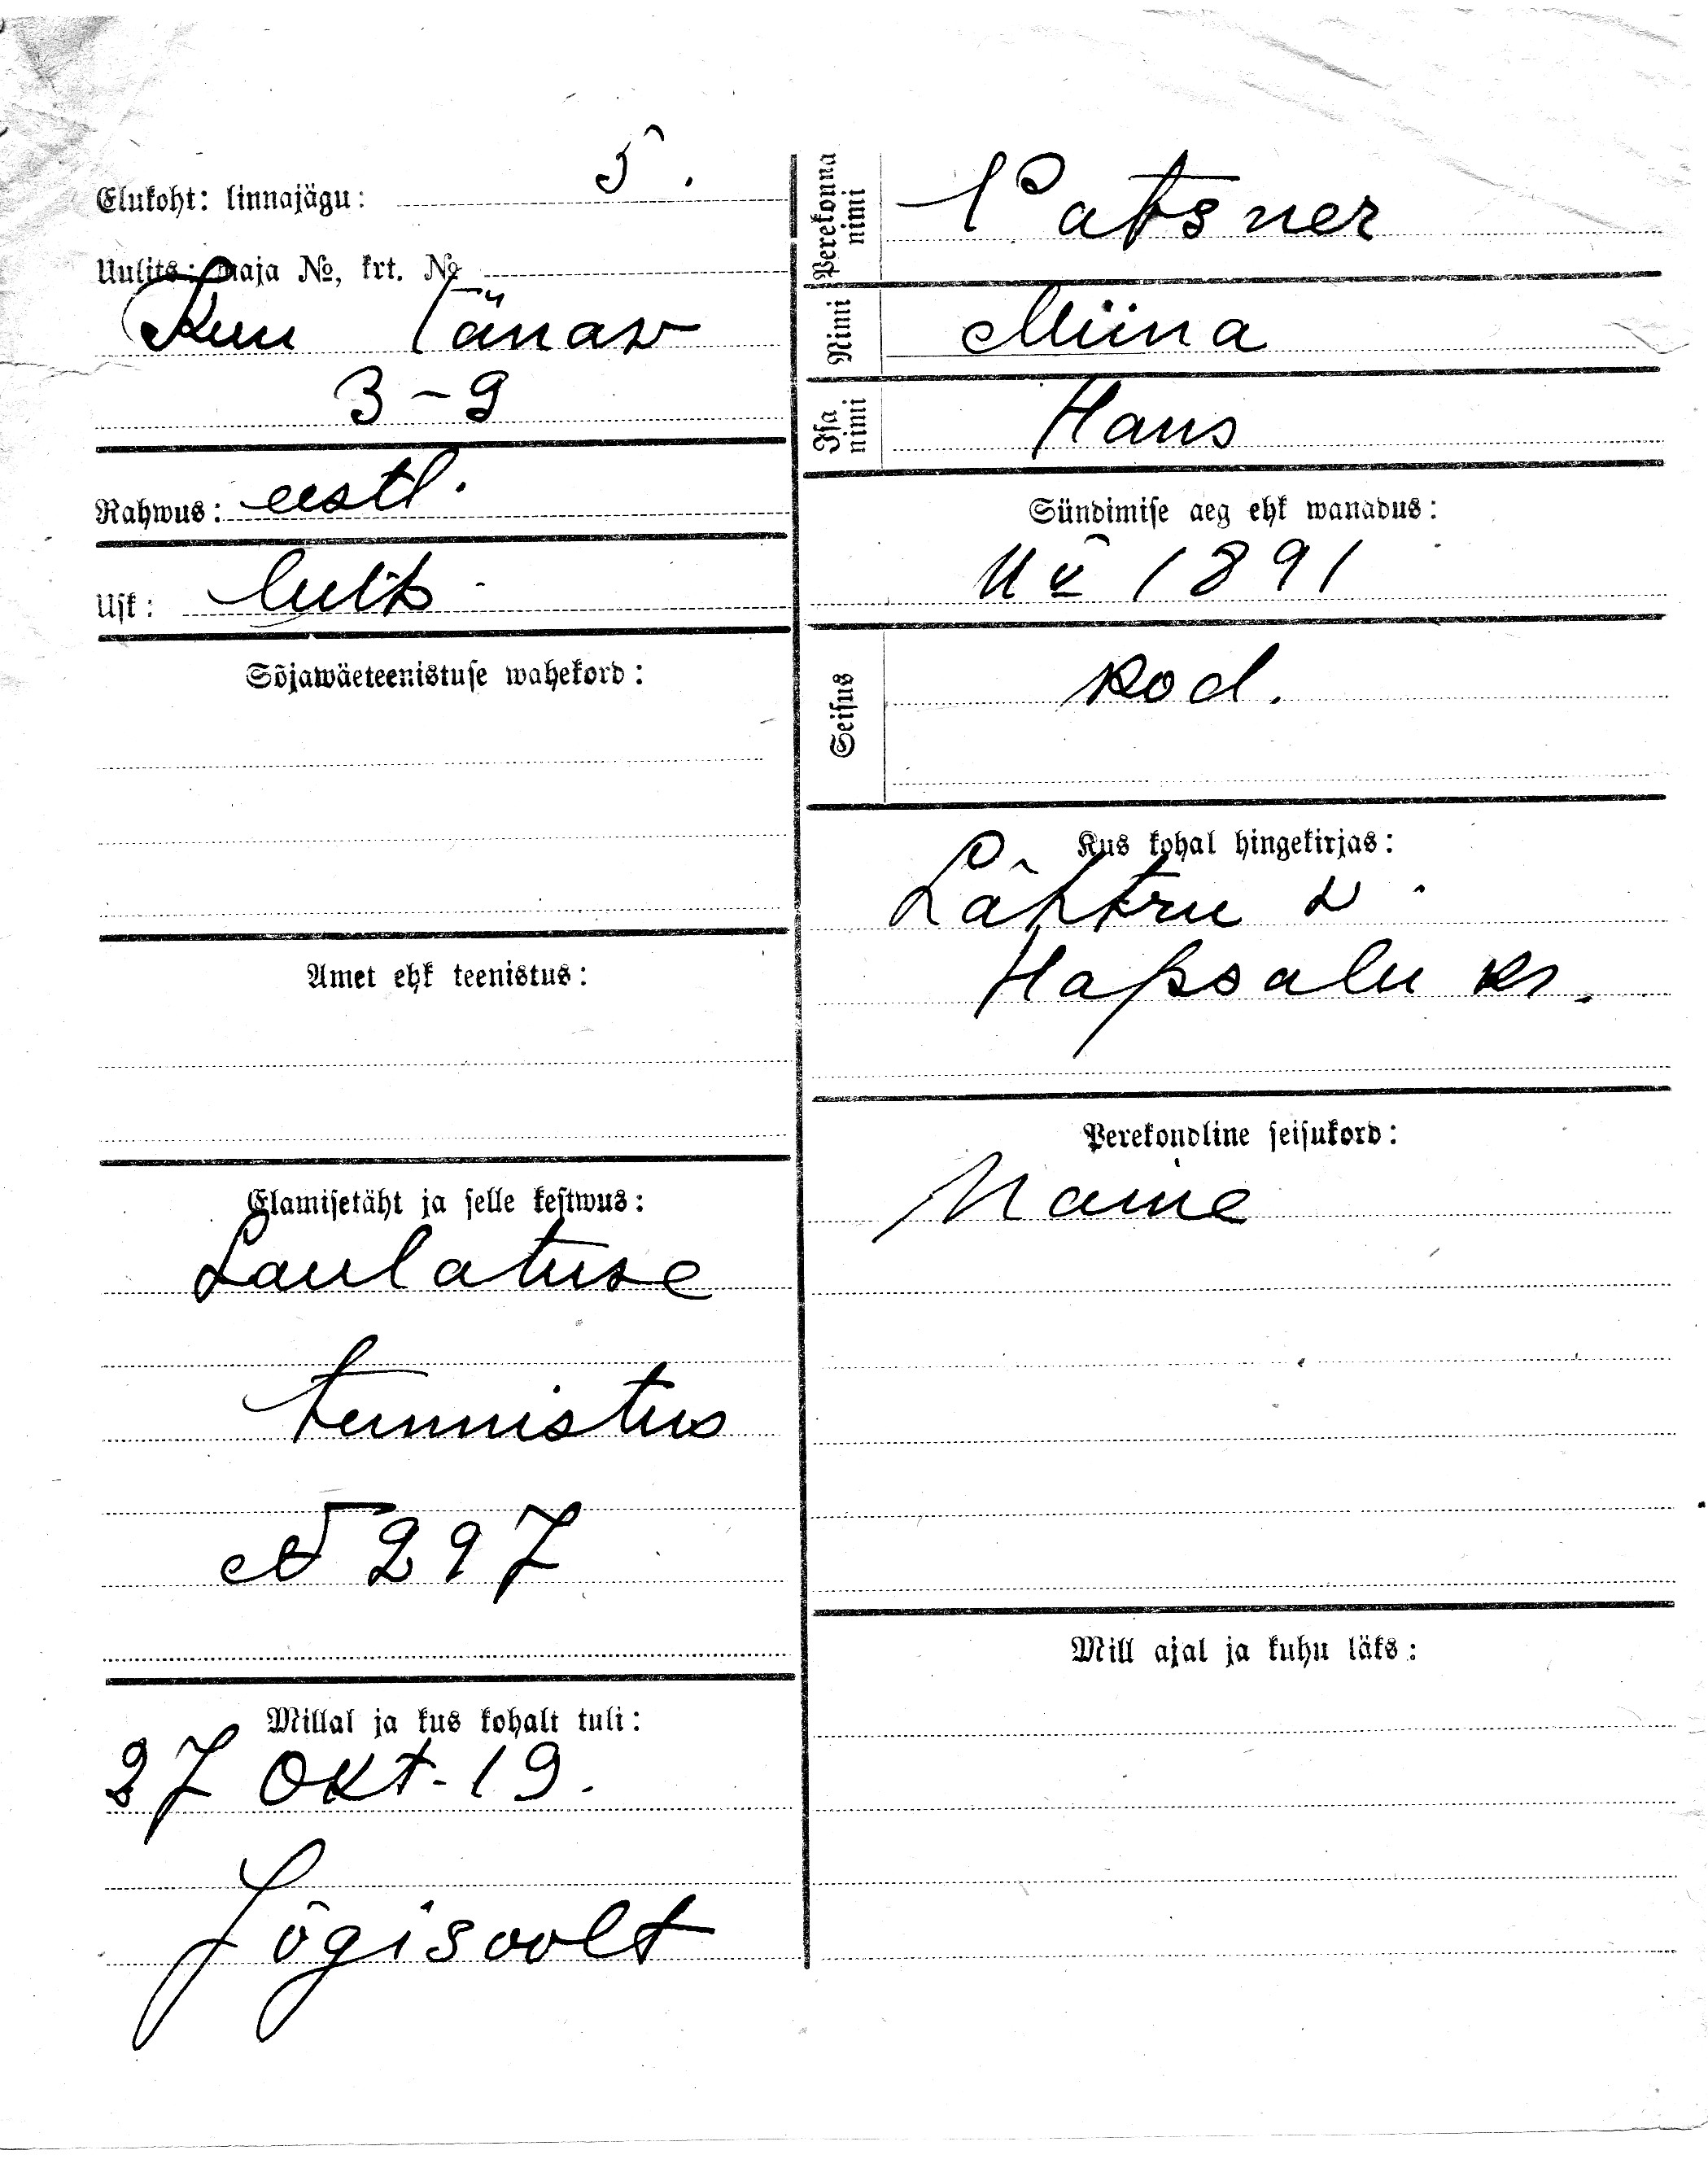 Elukoht: linnajägu: 5.
Uulits: maja №, krt. №
Kuu Tänaw
3-9
Rahwus: eestl.
Usk: luth
Sõjawäeteenistuse wahekord:
Amet ehk teenistus:
Elamisetäht ja selle kestwus:
Laulatuse
tunnistus
№ 297
Millal ja kus kohalt tuli:
27 Okt. 19.
Jõgisoolt
Perekonna nimi
Patsner
Nimi
Miina
Isa nimi
Hans
Sündimise aeg ehk wanadus:
1891
Seisus
kod.
Kus kohal hingekirjas:
Lähtru v.
Hapsalu kr.
Perekondline seisukord:
Naine
Mill ajal ja kuhu läks: